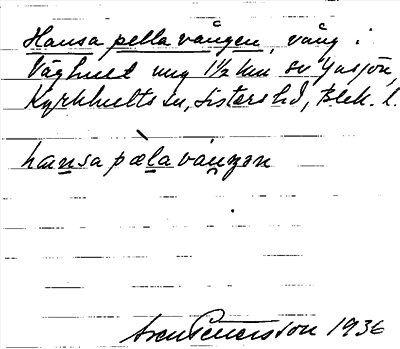 Hansa pella vången, vång i
Våghult ung 1½ km sv Gasjön,
Kyrkhults sn, Listers hd, Blek. l.
hansa pælavåŋən
Sven Petersson 1936